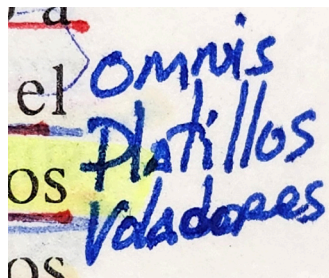 o a
el
os
os
omnis
Platillos
Voladores